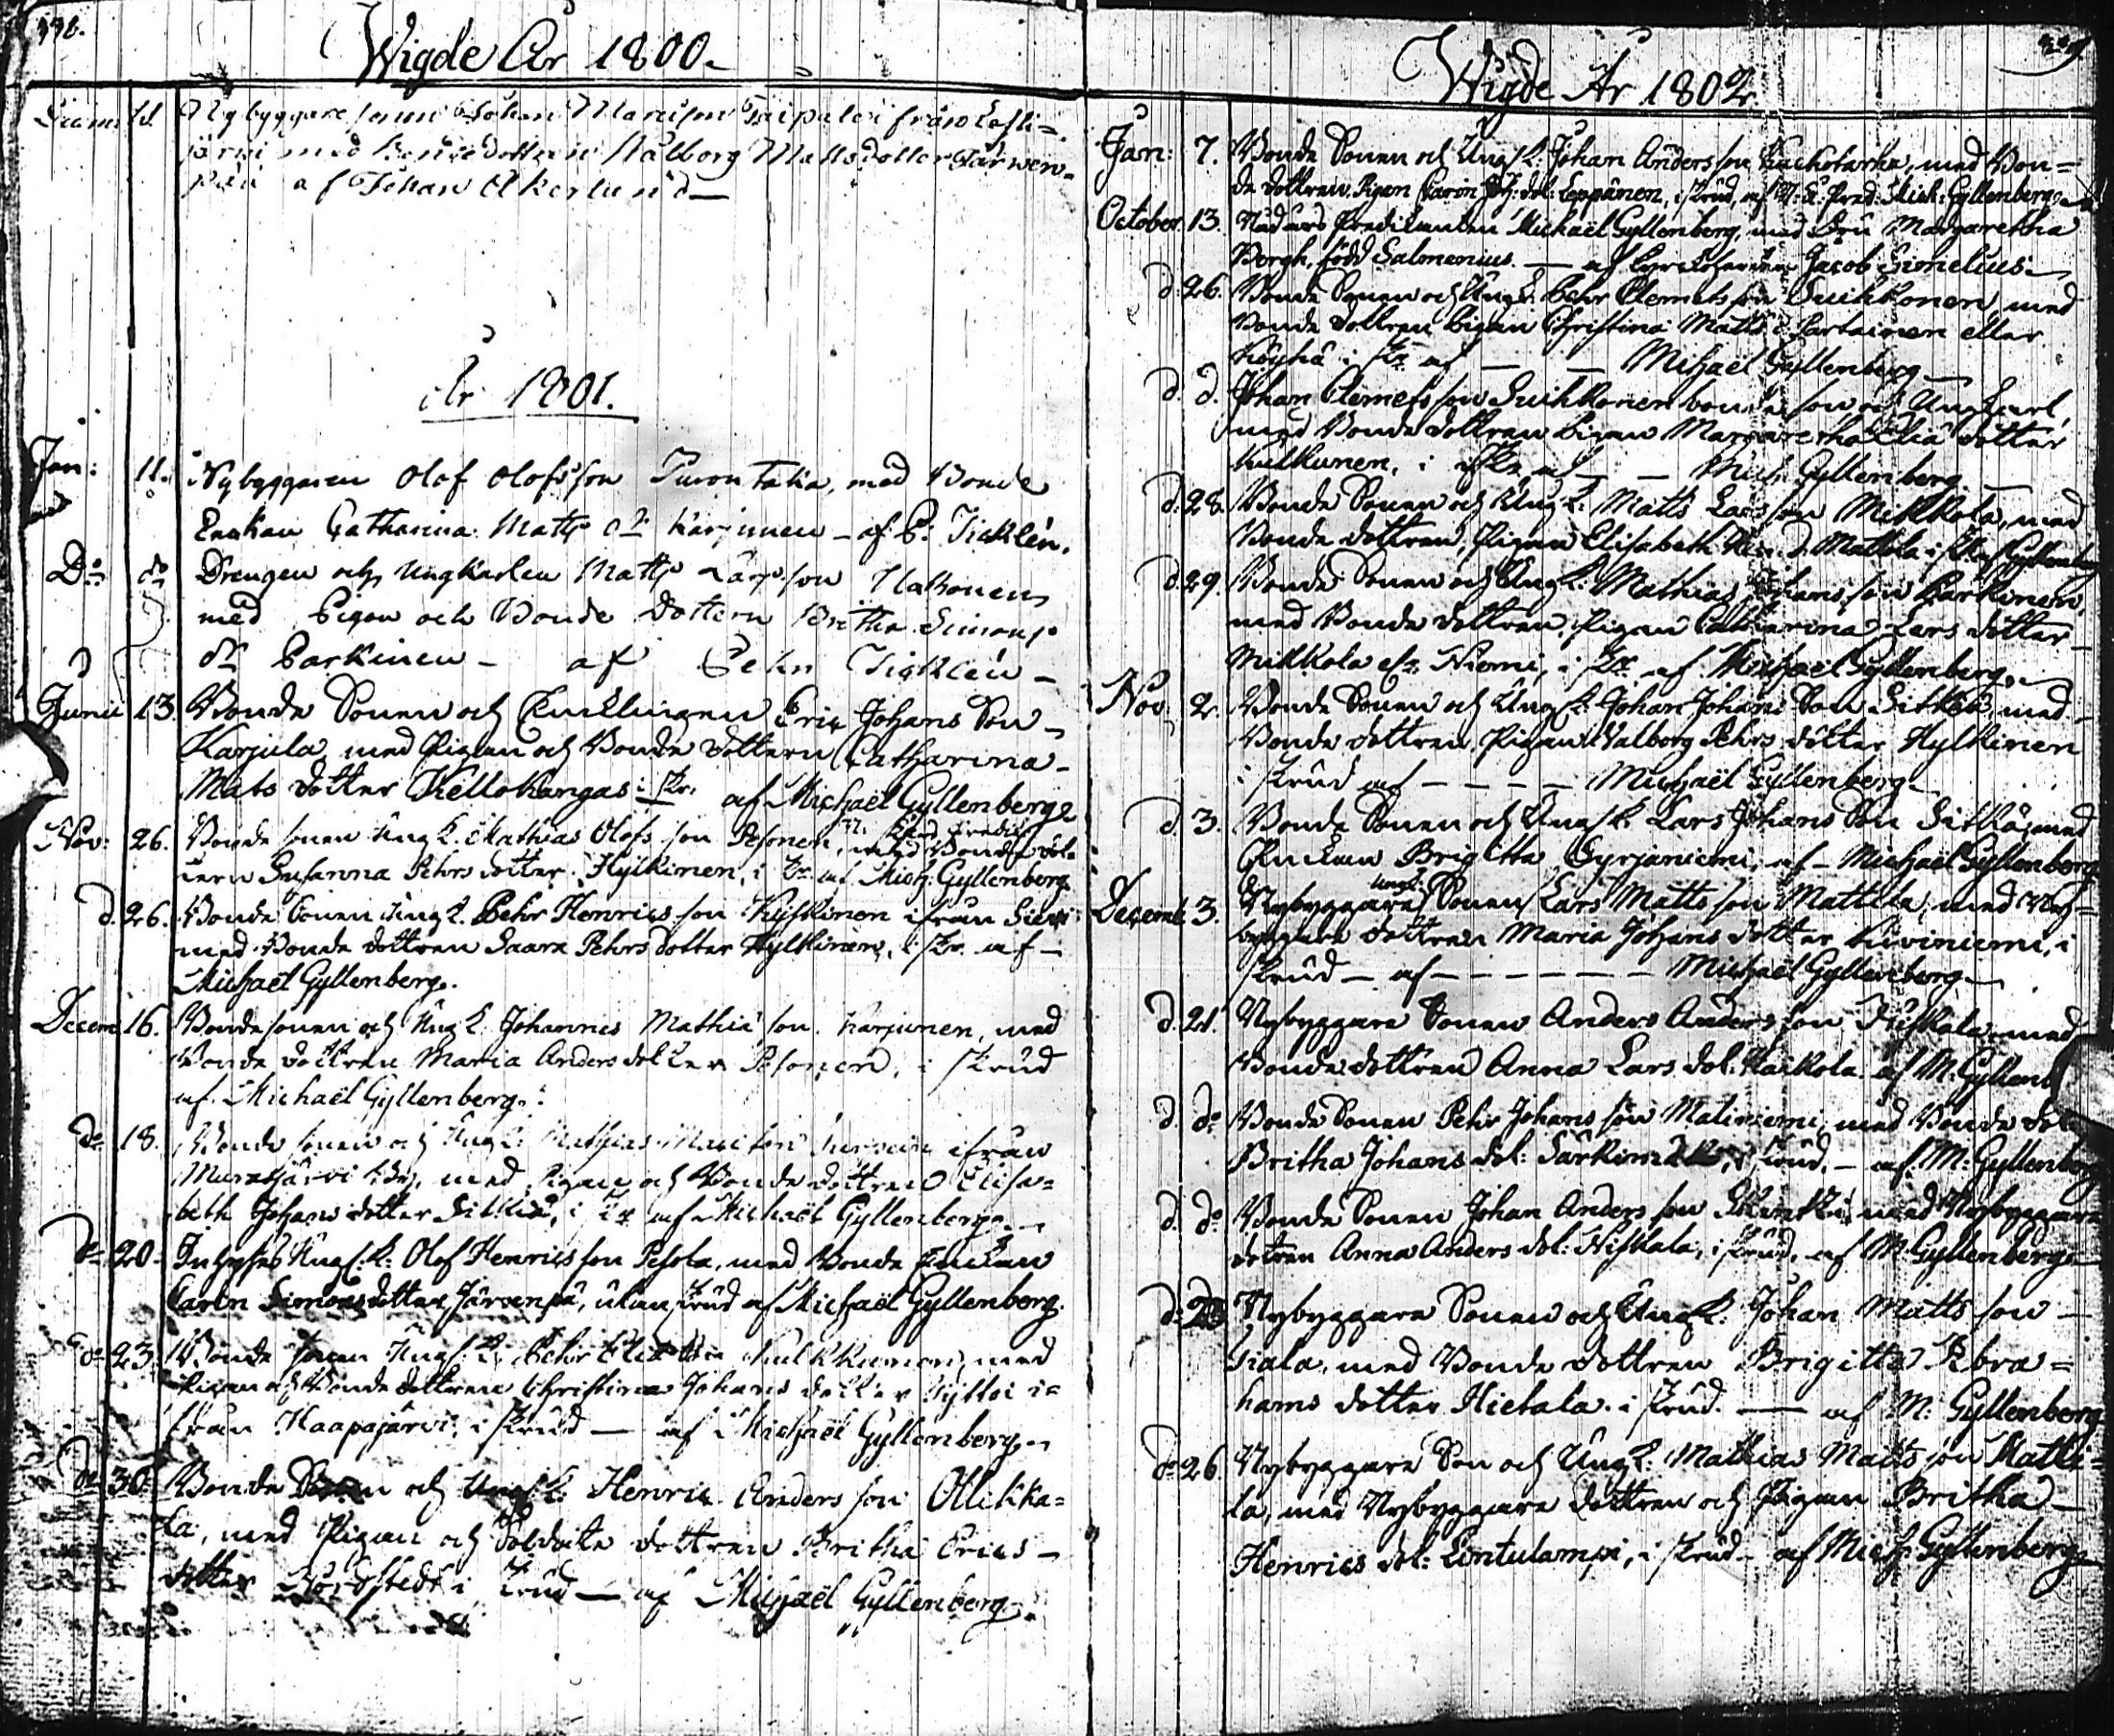 Wigde År 1800.
11. Nybyggare sonen Johan från Lesti=
järvi med Bondedottren Walborg Mattsdotter Järwen=
pää af Johan Åkerlund —
År 1801.
Jan: 11. Nybyggaren Olof Olofsson Turontaka, med Bonde
Enckan Catharina Matts dr Karjunen – af P. Ticklén.
Do do Drengen och Ungkarlen Matts Larsson Hakonen
med Pigan och Bonde Dottern Britha Simons
dr Parkinen – af Pehr Ticklén –
Junii 13. Bonde Sonen och Encklingen Eric Johans Son
Karjula med Pigan och Bonde dottern Catharina
Mats dotter Kellokangas i skr. af Michaël Gyllenberg
Nov: 26. Bonde sonen Ungk. Mathias Olofs son Pesonen, med Bonde dot=
tern Susanna Pehrs dotter Hylkinen, i skr. af Mich: Gyllenberg
d. 26. Bonde Sonen Ungk. Pehr Henrics son Kyskinen ifrån Sievi
med Bonde dottren Saara Pehrs dotter Hylkinen, i skr. af –
Michaël Gyllenberg.
Decem 16. Bonde sonen och Ungk. Johannes Mathiæ son Karjunen, med
Bonde dottren Maria Anders dotter Pesonen, i skrud
af Michaël Gyllenberg.
do 18. Bonde sonen och Ungk: Mathias ifrån
Murasjärvi med Pigan och Bonde dottren Elisa=
beth Johans dotter Sitkå, i skr. af Michaël Gyllenberg.
do 20. Inhyses Ungk. Olof Henrics son Pesola, med Bonde Enckan
Carin Simons dotter Järvenpä, utan skrud af Michaël Gyllenberg.
do 23. Bonde sonen Ungk. Pehr Kulkkunen, med
Pigan och Bonde dottren Christina Johans dotter Kyllöi i=
från Haapajärvi, i skrud — af Michaël Gyllenberg.
do 30. Bonde Sonen och Ungk: Henric Anders son Ollikka=
la, med Pigan och Soldate dottren Britha Erics –
dotter Nordstedt i skrud — af Michaël Gyllenberg.
Wigde År 1802.
Jan: 7. Bonde Sonen och Ungk. Johan Anders son med Bon=
de dottren, Pigan Carin dot: Leppänen, i skrud, af Mich: Gyllenberg
October 13. Nådårs Predikanten Michaël Gyllenberg, med Fru Margaretha
Bergh, född Salmenius — af Kyrckoherden Jacob Simelius
d. 26. Bonde Sonen och Ungk. Pehr Clemetsson Suihkonen, med
Bonde dottren Pigan Christina Matts d. Partainen eller
Köyhä i skr. af — — Michaël Gyllenberg
d. d. Johan Clemetsson Suihkonen bonde son och Ungkarl,
med Bonde dottren Pigan Margaretha Eliæ dotter
Kulkunen, i skr. af — — Mich. Gyllenberg.
d. 28. Bonde Sonen och Ungk: Matts Lars son Mikkola, med
Bonde dottren, Pigan Elisabeth d. Mattila i skr. af Gyllenberg
d. 29. Bonde Sonen och Ungk: Mathias Johans son Parkinen,
med Bonde dottren, Pigan Catharina Lars dotter
Mikkola el. Niemi, i skr. af Michaël Gyllenberg.
Nov. 2. Bonde Sonen och Ungk: Johan Johans Son Sitkå, med
Bonde dottren, Pigan Walborg Pehrs dotter Hylkinen
i skrud af — — — — Michaël Gyllenberg
d. 3. Bonde Sonen och Ungk. Lars Johans Son Sitkå, med
Enckan Brigitta Syrjäniemi, af – Michaël Gyllenberg
Decemb 3. Nybyggare Ungk: Sonen Lars Matts son Mattila, med Ny=
byggare dottren Maria Johans dotter Kiviniemi, i
skrud — af — — — — — Michaël Gyllenberg
d. 21. Nybyggare Sonen Anders Anders son Niskala, med
Bonde dottren Anna Lars dot. Haikola. af M. Gyllenb
d. do Bonde Sonen Pehr Johans son Matiniemi, med Bonde dot
Britha Johans dot: Särkimäki, i skrud, – af M: Gyllenberg
d. do Bonde Sonen Johan Anders son med Nybyggare
dottren Anna Anders dot: Niskala, i skrud, af M: Gyllenberg
d. Nybyggare Sonen och Ungk. Johan Matts son
med Bonde dottren Brigitta Abra=
hams dotter Hietala. i skrud. — af M: Gyllenberg
do 26. Nybyggare Son och Ungk: Mathias Matts son Matti=
la, med Nybyggare dottren och Pigan Britha
Henrics dot: Lintulampi, i skrud – af Mich: Gyllenberg